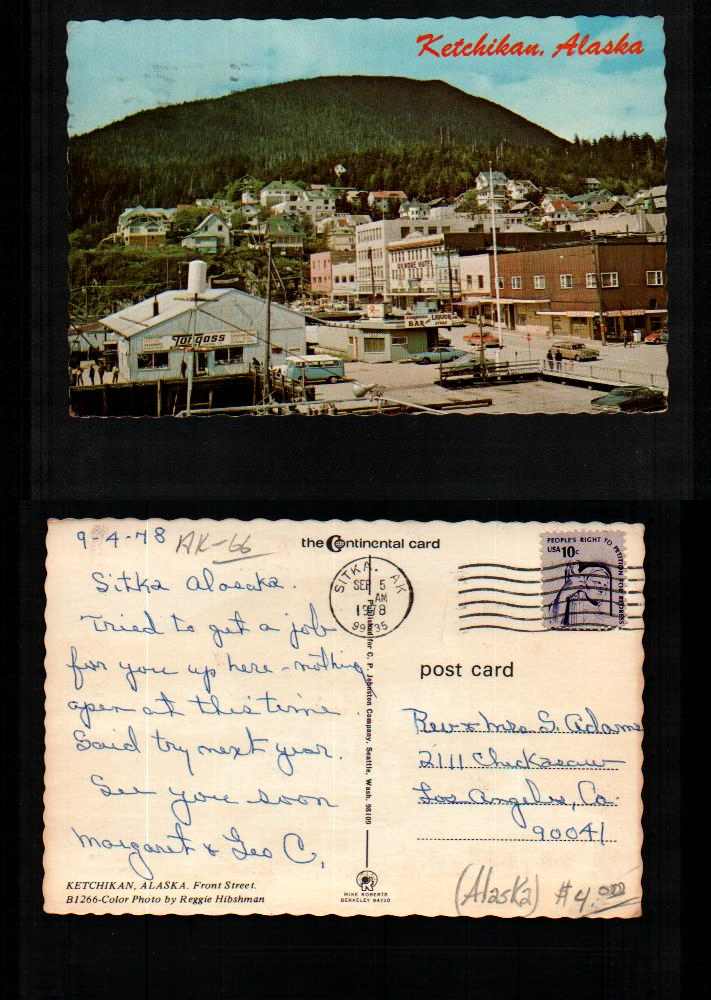 Ketchikan, Alaska
Tongass
BAR
LIQUOR
9-4-78 AK-66
the Continental card
Sitka Alaska.
Tried to get a job
for you up here - nothing
open at this time.
Said try next year.
See you soon
Margaret & Geo C.
KETCHIKAN, ALASKA. Front Street.
B1266-Color Photo by Reggie Hibshman
SITKA, AK
SEP 5
AM
1978
99835
Published for C. P. Johnston Company, Seattle, Wash. 98109
MIKE ROBERTS
BERKELEY 94710
PEOPLE'S RIGHT TO PETITION FOR REDRESS
USA 10c
post card
Rev & Mrs S. Adams
2111 Chickasaw
Los Angeles, Ca.
90041
(Alaska) $4.00